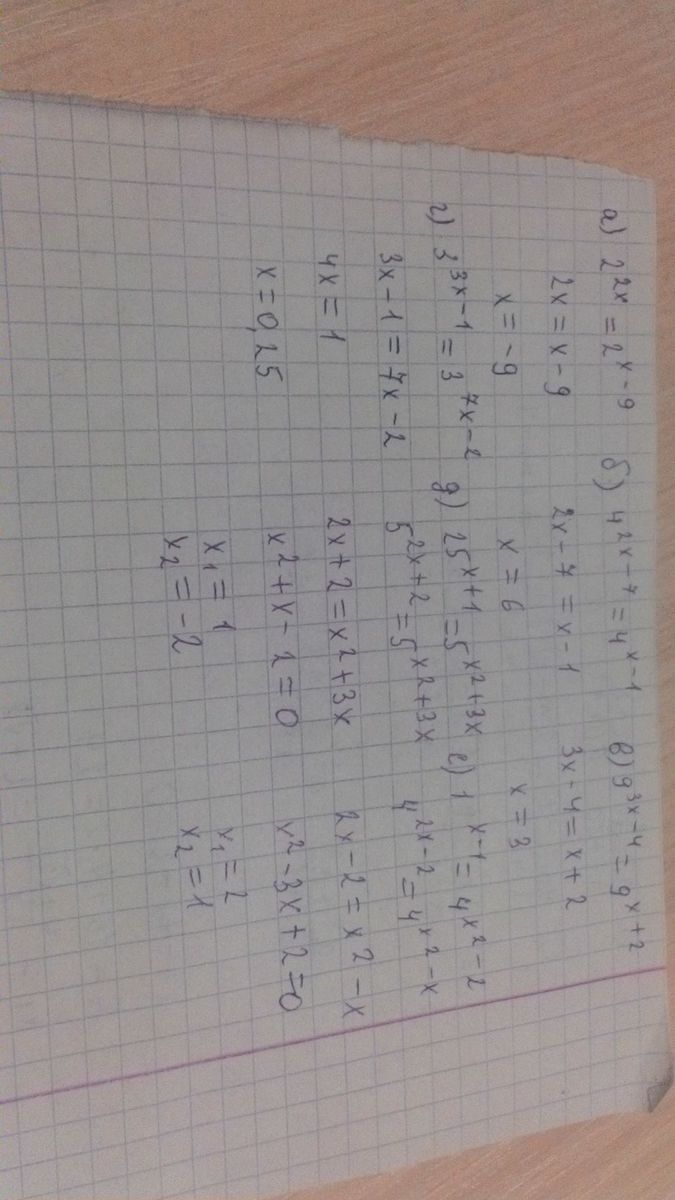 а) 2^{2x} = 2^{x-9}
2x = x - 9
x = -9
б) 4^{2x-7} = 4^{x-1}
2x - 7 = x - 1
x = 6
в) 9^{3x-4} = 9^{x+2}
3x - 4 = x + 2
x = 3
г) 3^{3x-1} = 3^{7x-2}
3x - 1 = 7x - 2
4x = 1
x = 0,25
д) 25^{x+1} = 5^{x^2+3x}
5^{2x+2} = 5^{x^2+3x}
2x + 2 = x^2 + 3x
x^2 + x - 2 = 0
x_1 = 1
x_2 = -2
е) 1^{x-1} = 4^{x^2-2}
4^{2x-2} = 4^{x^2-x}
2x - 2 = x^2 - x
x^2 - 3x + 2 = 0
x_1 = 2
x_2 = 1